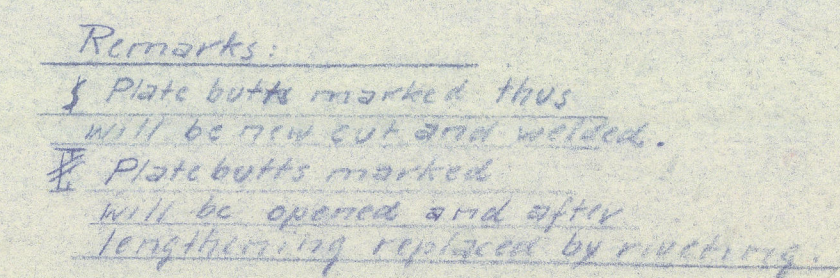 Remarks:
Plate butts marked thus
will be new cut and welded.
Plate butts marked
will be opened and after
lengthening replaced by riveting.